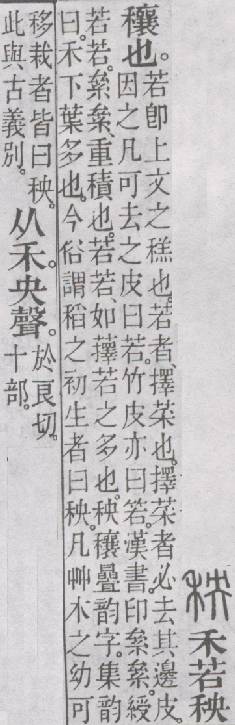 秧禾若秧
穰也。
若卽上文之䅵也。若者、擇菜也。擇菜者必去其邊皮。
因之凡可去之皮曰若。竹皮亦曰箬。漢書。印絫絫。綬
若若。絫絫、重積也。若若、如蘀若之多也。秧穰疊韵字。集韵
曰。禾下葉多也。今俗謂稻之初生者曰秧。凡艸木之幼可
移栽者皆曰秧。
此與古義別。
从禾。央聲。
於良切。
十部。